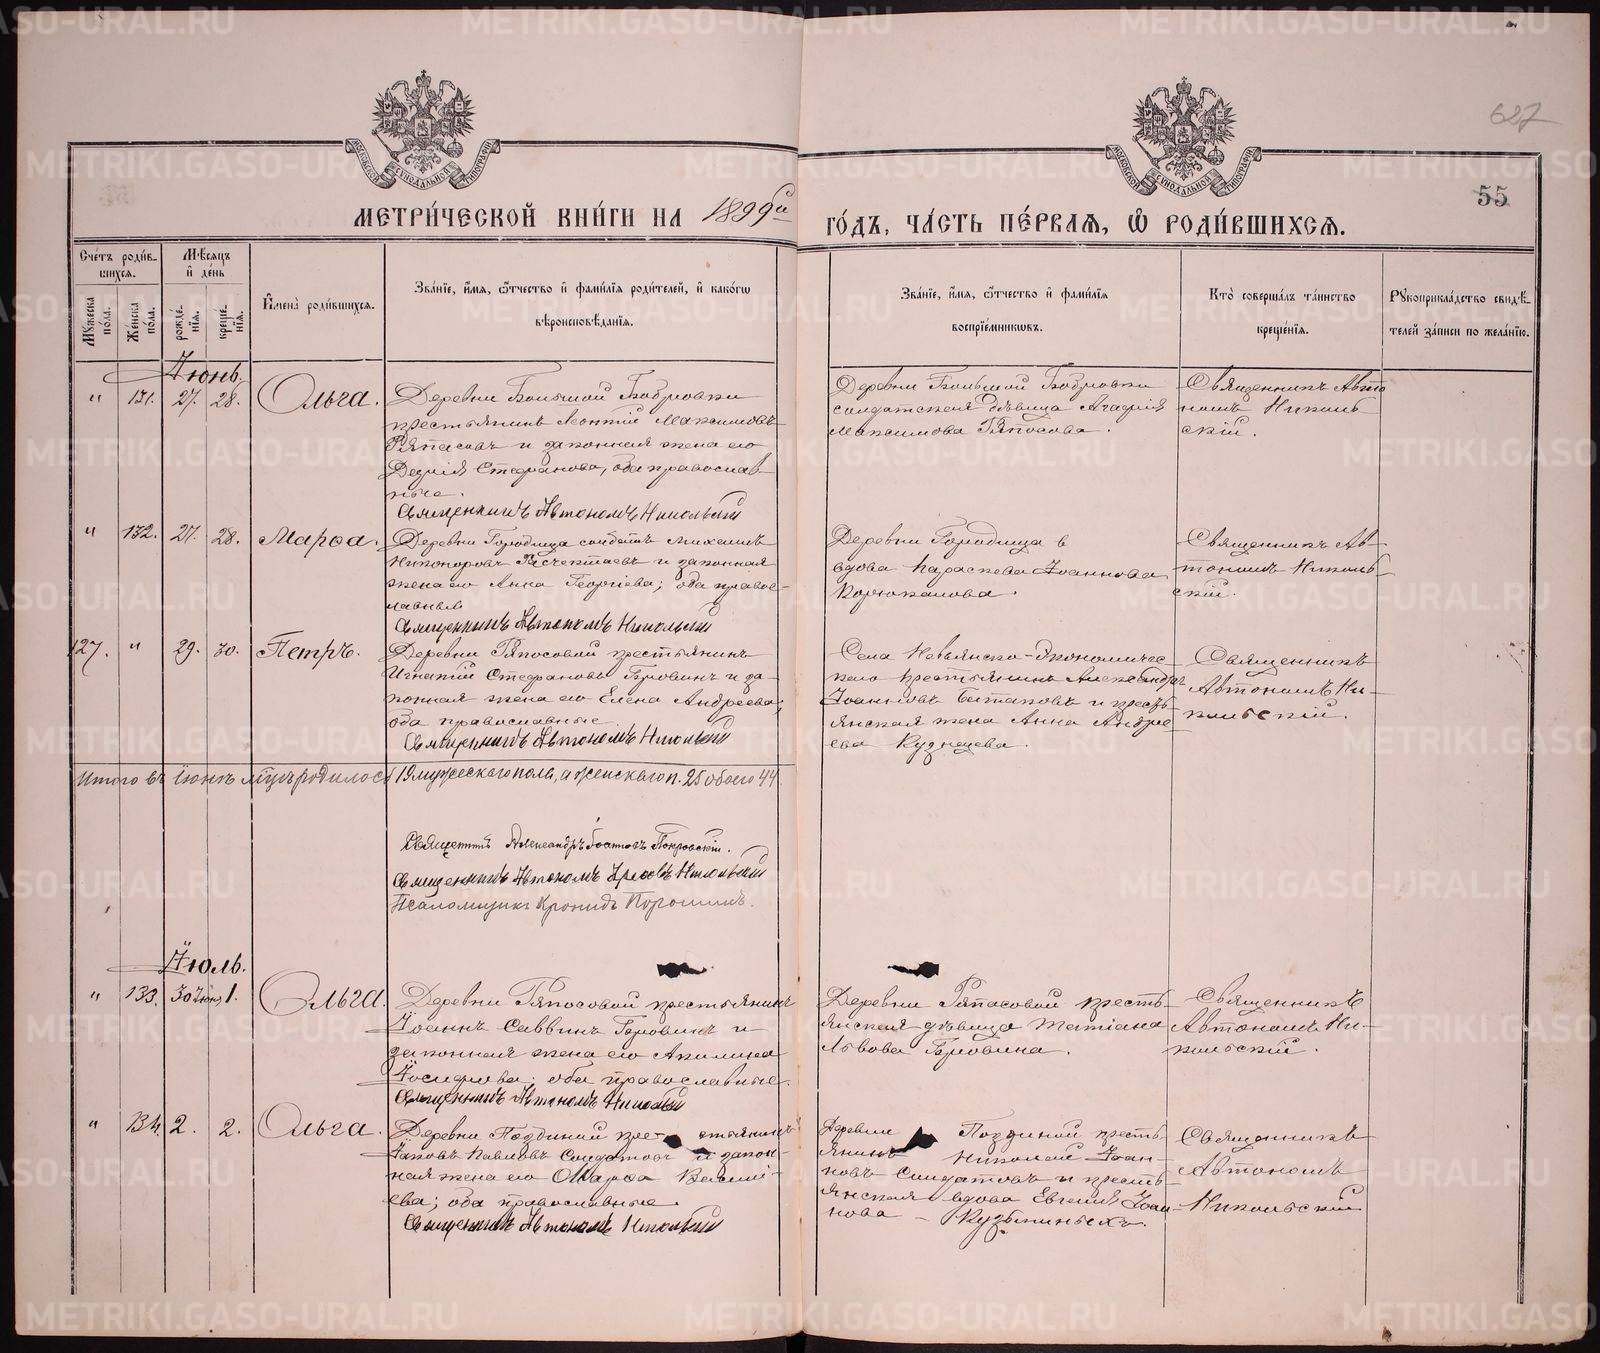 627
55
МЕТРИ́ЧЕСКОЙ КНИ́ГИ НА 1899й ГО́ДЪ, ЧА́СТЬ ПЕ́РВАЯ, Ѡ҆ РОДИ́ВШИХСЯ.
Сче́тъ роди́в-
шихся.
Мѣ́сяцъ
и҆ де́нь
Мꙋ́жеска по́ла.
Же́нска по́ла.
рожде́-
нїя.
креще́-
нїя.
И҆мена̀ роди́вшихся.
Зва́нїе, и҆́мя, ѻ҆́тчество и҆ фами́лїя роди́телей, и҆ како́гѡ
вѣроисповѣ́данїя.
Зва́нїе, и҆́мя, ѻ҆́тчество и҆ фами́лїя
воспрїе́мникѡвъ.
Кто̀ соверша́лъ та́инство
креще́нїя.
Рꙋкоприкла́дство свидѣ́-
телей за́писи по жела́нїю.
Іюнь.
" 131. 27. 28. Ольга.
Деревни Большой Бобровки
крестьянинъ Леонтій Максимовъ
и законная жена его
Стефанова, оба православ
ные.
Священникъ Автономъ Никольскій
Деревни Большой Бобровки
солдатская дѣвица
Максимова
Священникъ Авто
номъ Николь
скій.
" 132. 27. 28. Марѳа.
Деревни Городища солдатъ Михаилъ
Никоноровъ и законная
жена его Анна Георгіева; оба право-
славные
Священникъ Автономъ Никольскій
Деревни Городища в
вдова Параскева Іоаннова
Корюкалова.
Священникъ Ав-
тономъ Николь-
скій.
127. " 29. 30. Петръ.
Деревни Ряпосовой крестьянинъ
Игнатій Стефановъ и за-
конная жена его Елена Андреева;
оба православные.
Священникъ Автономъ Никольскій
Села Невьянско-Экономичес-
каго крестьянинъ Александръ
Іоанновъ и кресть-
янская жена Анна Андре
ева Кузнецева.
Священникъ
Автономъ Ни-
кольскій.
Итого въ Іюнѣ м-цѣ родилось 19 мужескаго пола, а женскаго п. 25 обоего 44
Священникъ Александръ Покровскій.
Священникъ Автономъ Никольскій
Псаломщикъ Кронидъ Порошинъ.
Іюль.
" 133. 30 Іюня 1. Ольга.
Деревни Ряпосовой крестьянинъ
Іоаннъ Саввинъ и
законная жена его Акилина
Іосифова; оба православные.
Священникъ Автономъ Никольскій
Деревни Ряпасовой кресть-
янская дѣвица Татіана
Львова
Священникъ
Автономъ Ни-
кольскій.
" 134. 2. 2. Ольга.
Деревни кре-стьянинъ
Іаковъ Павловъ Солдатовъ и закон-
ная жена его Марѳа Василь-
ева; оба православные.
Священникъ Автономъ Никольскій
Деревни кресть-
янинъ Николай Іоан-
новъ Солдатовъ и кресть-
янская вдова Евгенія Іоан
нова - Кузьминыхъ.
Священникъ
Автономъ
Никольскій